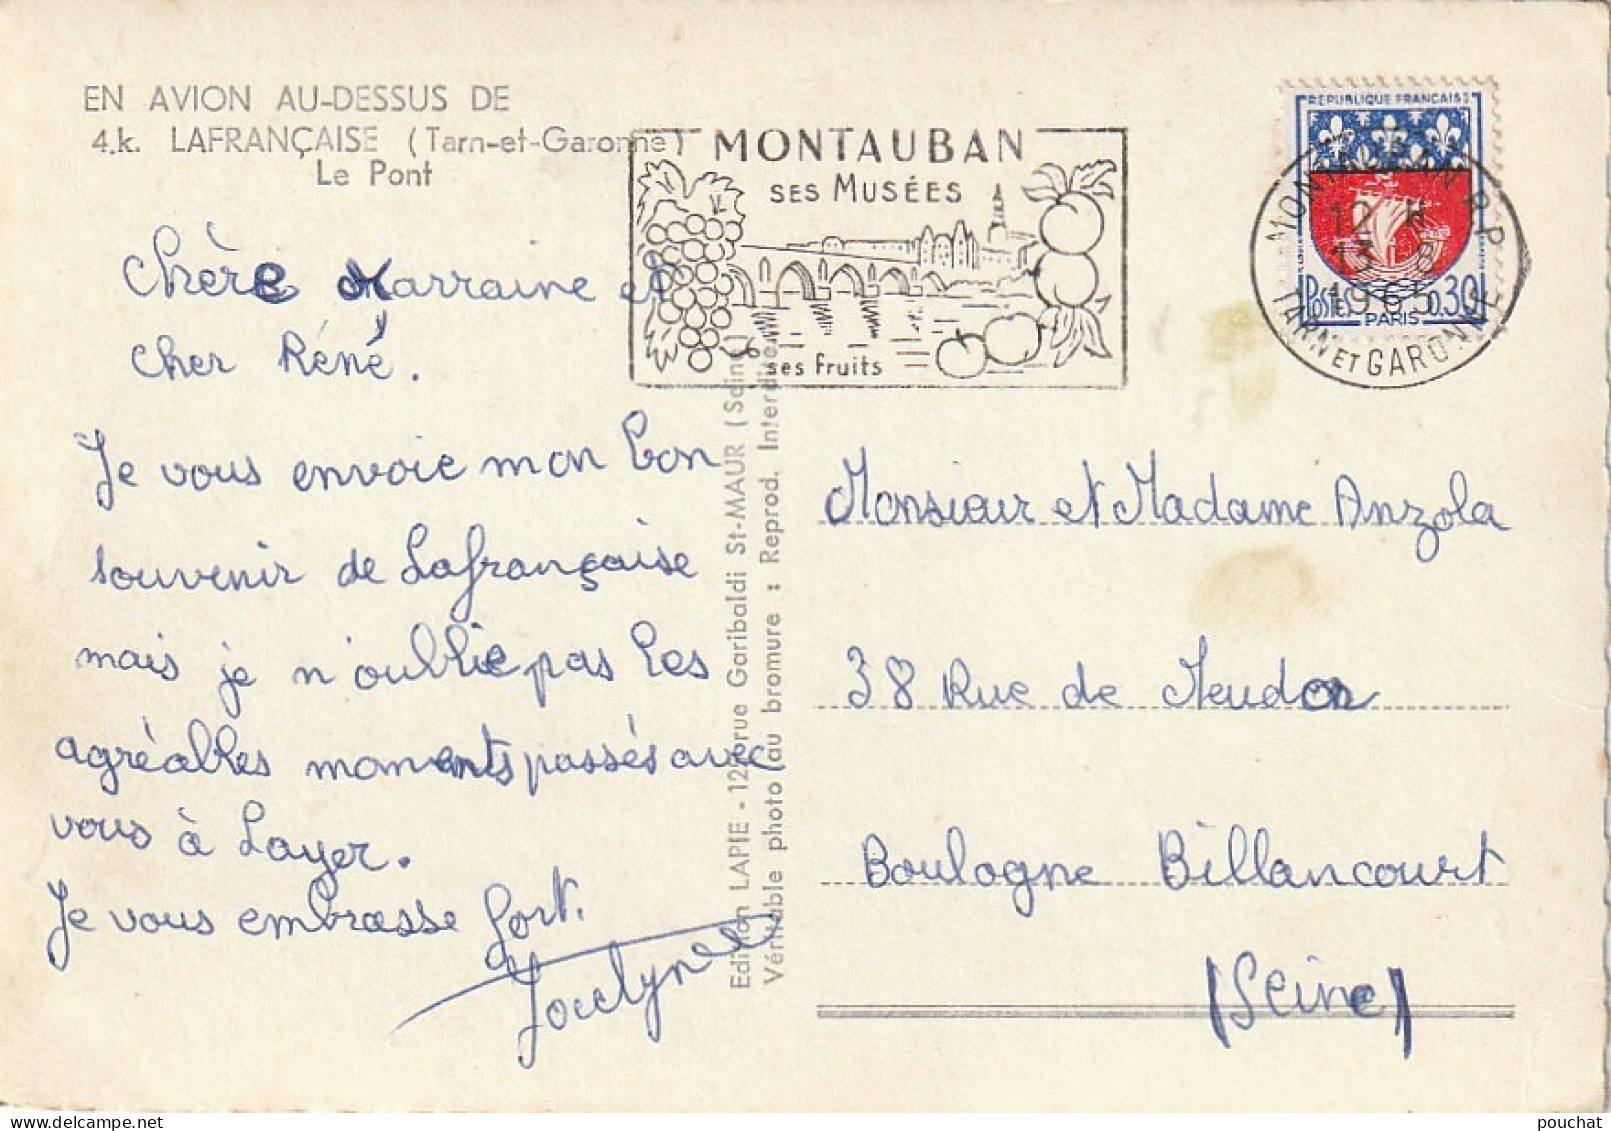 EN AVION AU-DESSUS DE
4.k. LAFRANÇAISE (Tarn-et-Garonne)
Le Pont
MONTAUBAN
SES MUSÉES
ses fruits
REPUBLIQUE FRANÇAISE
POSTES 0.30
PARIS
MONTAUBAN R.P.
12 H
13 - 8
1965
TARN ET GARONNE
Chère Marraine et
cher Réné.
Je vous envoie mon bon
souvenir de Lafrançaise
mais je n'oublie pas les
agréables moments passés avec
vous à Layer.
Je vous embrasse fort.
Jocelyne
Edition LAPIE - 12, rue Garibaldi St-MAUR (Seine)
Véritable photo au bromure : Reprod. Interdite
Monsieur et Madame Anzola
38 Rue de Meudon
Boulogne Billancourt
(Seine)
pouchat